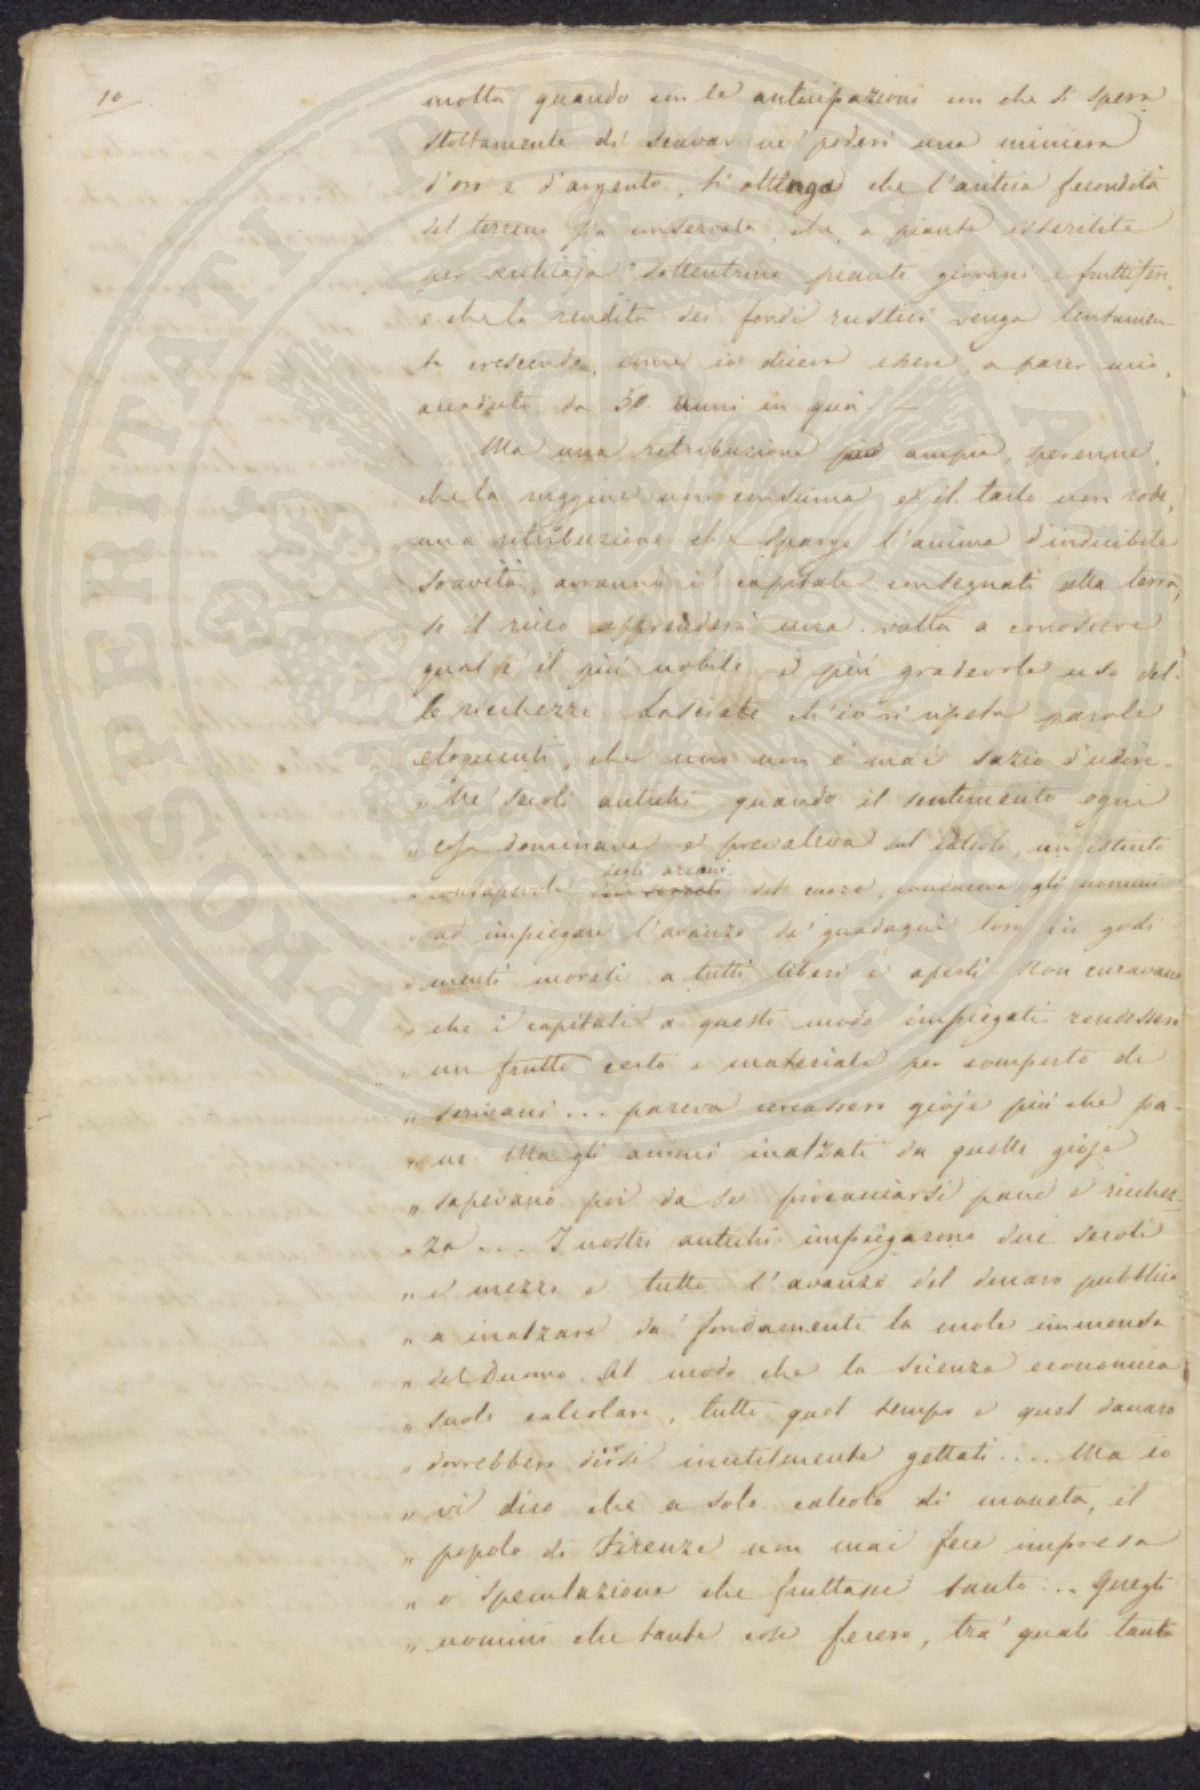 10
molta quando con le anticipazioni con che si spera
stoltamente di scavar ne' poderi una miniera
d'oro e d'argento, si ottenga che l'antica fecondità
del terreno sia conservata, che a piante isterilite
per vecchiaja sottentrino piante giovani e fruttifere,
e che la rendita dei fondi rustici venga lentamen-
te crescendo, come io diceva essere, a parer mio,
accaduto da 50 anni in quà. —
Ma una retribuzione più ampia, perenne,
che la ruggine non consuma e il tarlo non rode,
una retribuzione che sparge l'anima d'indicibile
soavità, avranno i capitali consegnati alla terra,
se il ricco apprenderà una volta a conoscere
qual è il più nobile e più gradevole uso del-
le ricchezze. Lasciate ch'io vi ripeta parole
eloquenti, che uno non è mai sazio d'udire.
„ Ne' secoli antichi quando il sentimento ogni
„ cosa dominava e prevaleva sul calcolo, un istinto
degli arcani
„ consapevole dei segreti del cuore, conduceva gli uomini
„ ad impiegare l'avanzo de' guadagni loro in godi
„ menti morali a tutti liberi e aperti. Non curavano
„ che i capitali a questo modo impiegati rendessero
„ un frutto certo e materiale per computo di
„ scrivani ... pareva cercassero gioje più che pa-
„ ne. Ma gli animi inalzati da quelle gioje
„ sapevano poi da se procacciarsi pane e ricchez-
„ za ... I nostri antichi impiegarono due secoli
„ e mezzo e tutto l'avanzo del denaro pubblico
„ a inalzare da' fondamenti la mole immensa
„ del Duomo. Al modo che la scienza economica
„ suole calcolare, tutto quel tempo e quel danaro
„ dovrebbero dirsi inutilmente gettati .... Ma io
„ vi dico che a solo calcolo di moneta, il
„ popolo di Firenze non mai fece impresa
„ o speculazione che fruttasse tanto ... Quegli
„ uomini che tante cose fecero, tra' quali tanta
PROSPERITATI PUBLICAE AUGENDAE